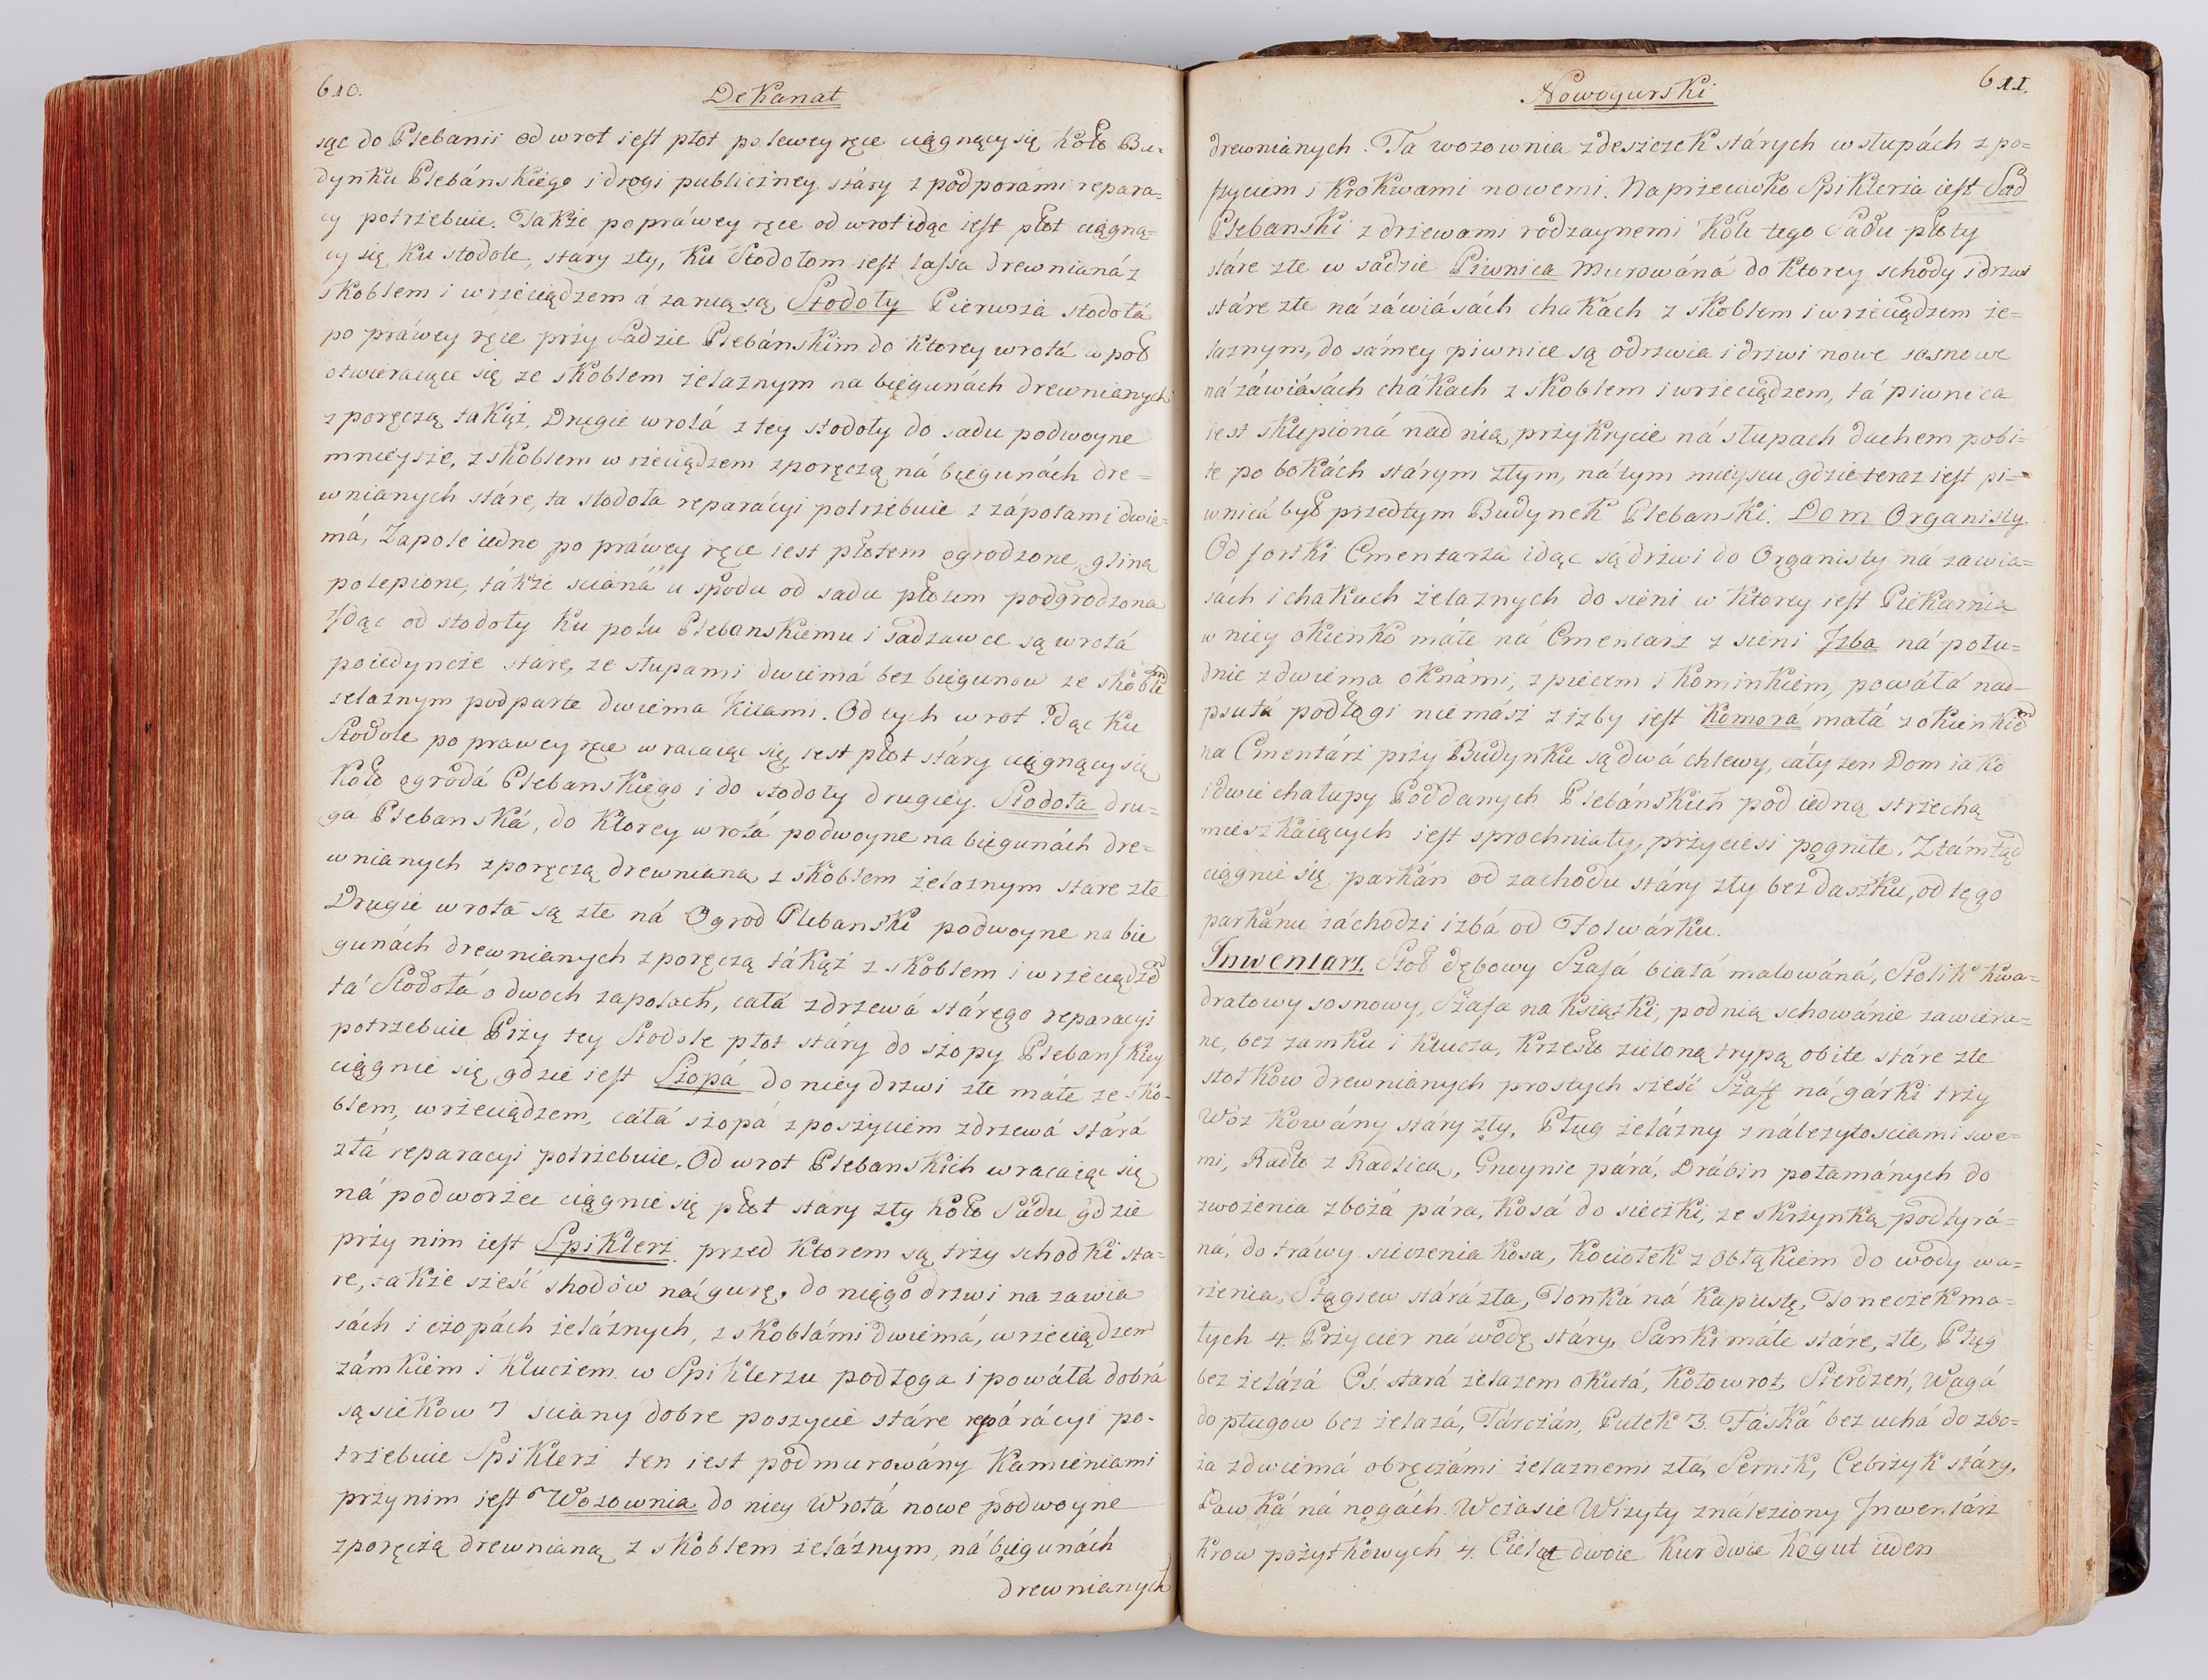 610.
Dekanat
sąc do Plebanii od wrot iest płot po lewey ręce ciągnący się koło Bu=
dynku Plebánskiego i drogi publiczney stáry z podporámi repara=
cy potrzebuie. Także po práwey ręce od wrot idąc iest płot ciągną=
cy się ku stodole, stáry zły, ku Stodołom iest lassa drewnianá z
skoblem i wrzeciądzem á za nią są Stodoły Pierwsza stodołá
po práwey ręce przy Sadzie Plebánskim do ktorey wrotá w poł
otwieraiące się ze skoblem żelaznym na biegunách drewnianych
z poręczą takąż, Drugie wrotá z tey stodoły do sadu podwoyne
mnieysze, z skoblem wrzeciądzem z poręczą ná biegunách dre=
wnianych stáre, ta stodoła reparácyi potrzebuie z zápolami dwie=
má, Zapole iedno po práwey ręce iest płotem ogrodzone, gliną
polepione, tákże scianá u spodu od sadu płotem podgrodzona
Jdąc od stodoły ku polu Plebanskiemu i sadzawce są wrotá
poiedyncze stáre, ze słupami dwiemá bez biegunow ze skoblē
żelaznym podparte dwiema kiiami. Od tych wrot idąc ku
Stodole po prawey ręce wracaiąc się iest płot stáry ciągnący się
koło ogrodá Plebanskiego i do stodoły drugiey. Stodoła dru=
gá Plebanská, do ktorey wrotá podwoyne na biegunách dre=
wnianych z poręczą drewnianą z skoblem żelaznym stare złe
Drugie wrota są złe ná Ogrod Plebanski podwoyne na bie
gunách drewnianych z poręczą tákąż z skoblem i wrzeciądzē
tá Stodołá o dwoch zapolach, całá z drzewá stárego reparacyi
potrzebuie Przy tey Stodole płot stáry do szopy Plebanskiey
ciągnie się, gdzie iest Szopá do niey drzwi złe máłe ze sko-
blem, wrzeciądzem, całá szopá z poszyciem z drzewá stárá
złá reparacyi potrzebuie. Od wrot Plebanskich wracaiąc się
ná podworze ciągnie się płot stary zły koło Sadu gdzie
przy nim iest Spiklerz. przed ktorem są trzy schodki sta=
re, także sześć shodów ná gurę, do niego drzwi na zawia
sách i czopách żeláznych, z skoblámi dwiemá, wrzeciądzem
zámkiem i kluczem. w Spiklerzu podłoga i powáła dobrá
sąsiekow 7 sciany dobre poszycie stáre reparácyi po-
trzebuie Spiklerz ten iest podmurowány kamieniami
przy nim iest Wozownia do niey Wrotá nowe podwoyne
z poręczą drewnianą z skoblem żeláznym, ná biegunách
drewnianych
611.
Nowogurski
drewnianych. Ta wozownia z deszczek stárych w słupách z po=
szyciem i krokwami nowemi. Na przeciwko Spiklerza iest Sad
Plebanski z drzewami rodzaynemi koło tego Sadu płoty
stáre złe w sadzie Piwnica murowáná do ktorey schody i drzwi
stáre złe ná záwiásách chakách z skoblem i wrzeciądzem że=
laznym, do sámey piwnice są odrzwia i drzwi nowe sosnowe
ná záwiásách chákach z skoblem i wrzeciądzem, tá piwnica
iest sklepioná nad nią przykrycie ná słupach dachem pobi=
te po bokách stárym złym, ná tym mieyscu gdzie teraz iest pi=
wnicá był przedtym Budynek Plebanski. Dom Organisty.
Od fortki Cmentarza idąc są drzwi do Organisty ná zawia=
sách i chakach żelaznych do sieni w ktorey iest Piekarnia
w niey okienko máłe ná Cmentarz z sieni Jzba ná połu=
dnie z dwiema oknámi, z piecem i kominkiem, powáłá nad-
psutá podłogi niemász z izby iest komorá małá z okienkiē
na Cmentárz przy Budynku są dwá chlewy, cáły ten Dom iako
i dwie chałupy Poddanych Plebánskich pod iedną strzechą
mieszkaiących iest sprochniały, przyciesi pogniłe. Ztámtąd
ciągnie się parkán od zachodu stáry zły bez daszku, od tego
parkánu záchodzi izbá od Folwárku.
Inwentarz. Stoł dębowy Szafá białá malowáná, Stolik kwa=
dratowy sosnowy, Szafa na ksiązki, pod nią schowánie zawiera=
ne, bez zamku i klucza, krzesło zieloną trypą obite stáre złe
stołkow drewnianych prostych sześć Szaff ná gárki trzy
Woz kowány stáry zły, Pług żelázny z náleżytosciami swe=
mi, Radło z Radlicą, Gnoynic párá, Drábin połamánych do
zwożenia zbożá pára, kosá do sieczki, ze skrzynką podłyrá=
ná, do tráwy sieczenia kosa, kociołek z obłąkiem do wody wa=
rzenia, Stągiew stárá zła, Fonká ná kapustę, Foneczek ma=
łych 4. Przycier ná wodę stáry, Sanki máłe stáre, złe, Pług
bez żelázá Oś stará żelazem okutá, kołowrot, Sierdzeń, Wagá
do pługow bez żelazá, Tárczán, Putek 3. Fáská bez uchá do zbo=
ża z dwiemá obręczámi żelaznemi złá, Sernik, Cebrzyk stáry,
Ławká ná nogách. W czasie Wizyty ználeziony Jnwentárz
krow pożytkowych 4. Cieląt dwoie kur dwie kogut ieden